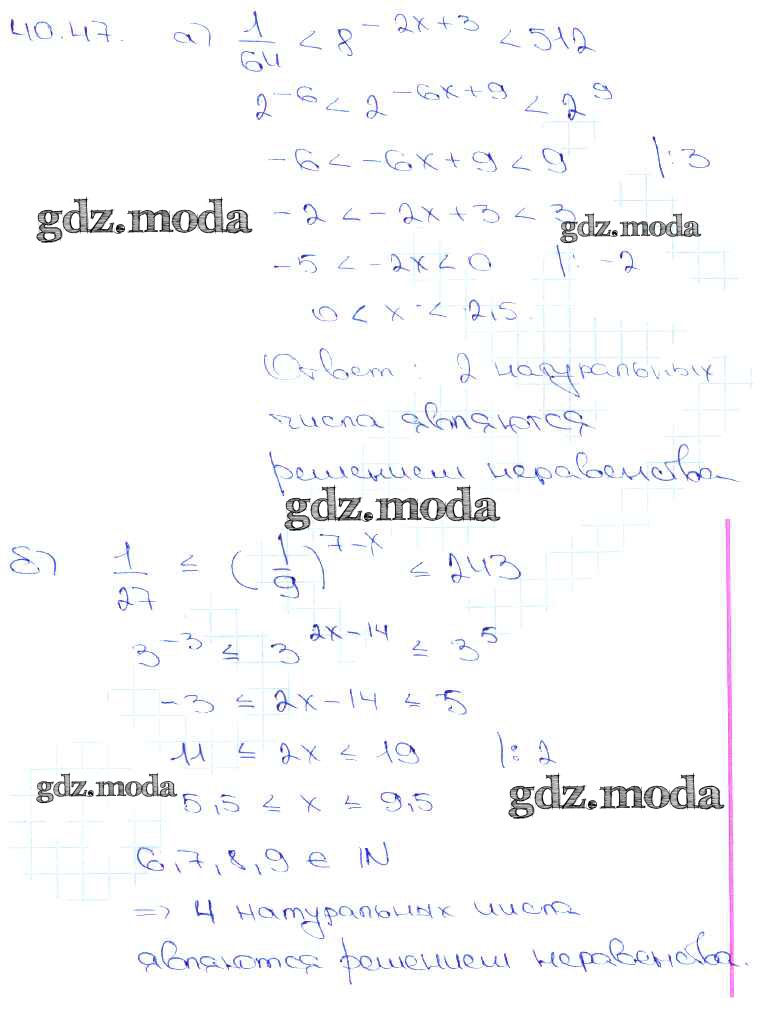 40.47. а) 1/64 < 8^(-2x+3) < 512
2^(-6) < 2^(-6x+9) < 2^9
-6 < -6x+9 < 9 |:3
gdz.moda -2 < -2x+3 < 3 gdz.moda
-5 < -2x < 0 |: -2
0 < x < 2,5
Ответ: 2 натуральных
числа являются
решением неравенства
gdz.moda
б) 1/27 ≤ (1/9)^(7-x) ≤ 243
3^(-3) ≤ 3^(2x-14) ≤ 3^5
-3 ≤ 2x-14 ≤ 5
11 ≤ 2x ≤ 19 |:2
gdz.moda 5,5 ≤ x ≤ 9,5 gdz.moda
6,7,8,9 ∈ N
=> 4 натуральных числа
являются решением неравенства.